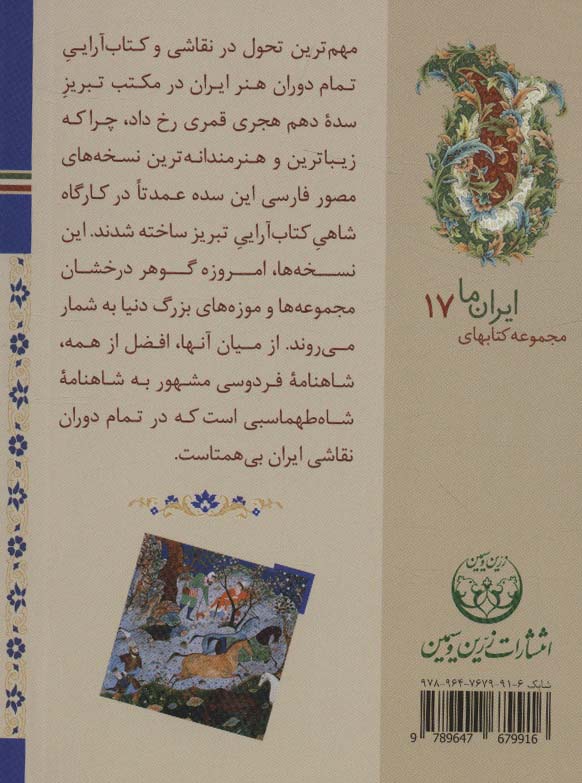 مهم‌ترین تحول در نقاشی و کتاب‌آراییِ
تمام دوران هنر ایران در مکتب تبریزِ
سدهٔ دهم هجری قمری رخ داد، چرا که
زیباترین و هنرمندانه‌ترین نسخه‌های
مصور فارسی این سده عمدتاً در کارگاه
شاهیِ کتاب‌آراییِ تبریز ساخته شدند. این
نسخه‌ها، امروزه گوهر درخشان
مجموعه‌ها و موزه‌های بزرگ دنیا به شمار
می‌روند. از میان آنها، افضل از همه،
شاهنامهٔ فردوسی مشهور به شاهنامهٔ
شاه‌طهماسبی است که در تمام دوران
نقاشی ایران بی‌همتاست.
ایران ما ۱۷
مجموعه کتابهای
زرین و سیمین
انتشارات زرّین و سیمین
شابک ۶-۹۱-۷۶۷۹-۹۶۴-۹۷۸
9 789647 679916